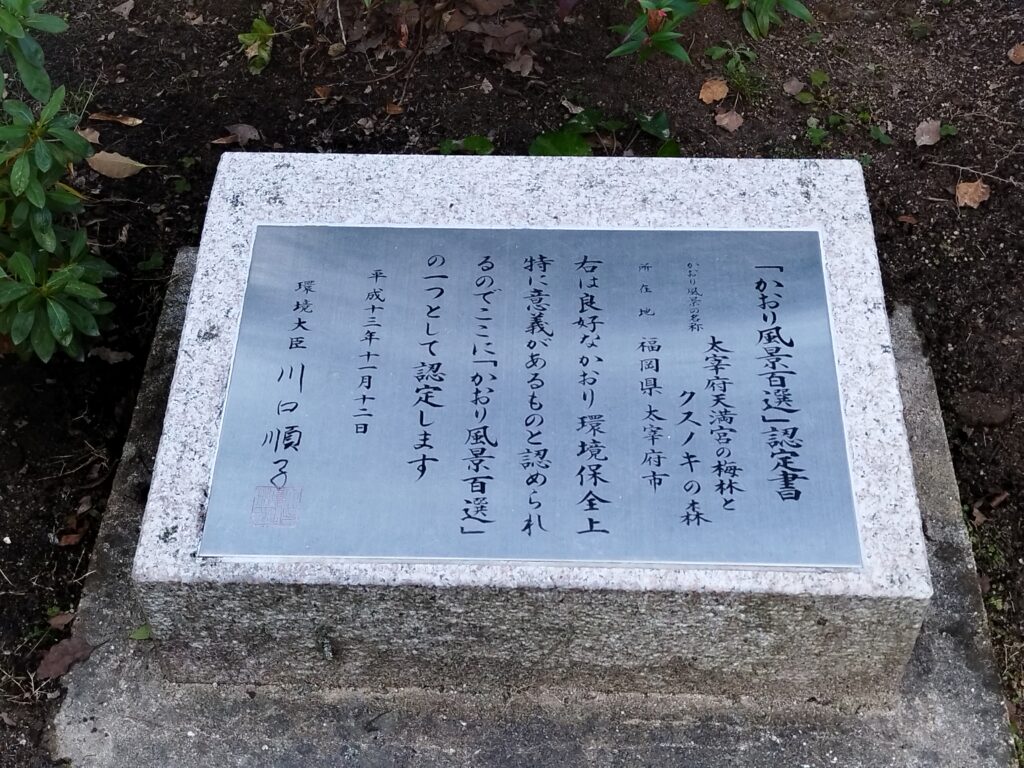 「かおり風景百選」認定書
かおり風景の名称
太宰府天満宮の梅林と
クスノキの森
所在地 福岡県太宰府市
右は良好なかおり環境保全上
特に意義があるものと認められ
るのでここに「かおり風景百選」
の一つとして認定します
平成十三年十一月十二日
環境大臣 川口順子